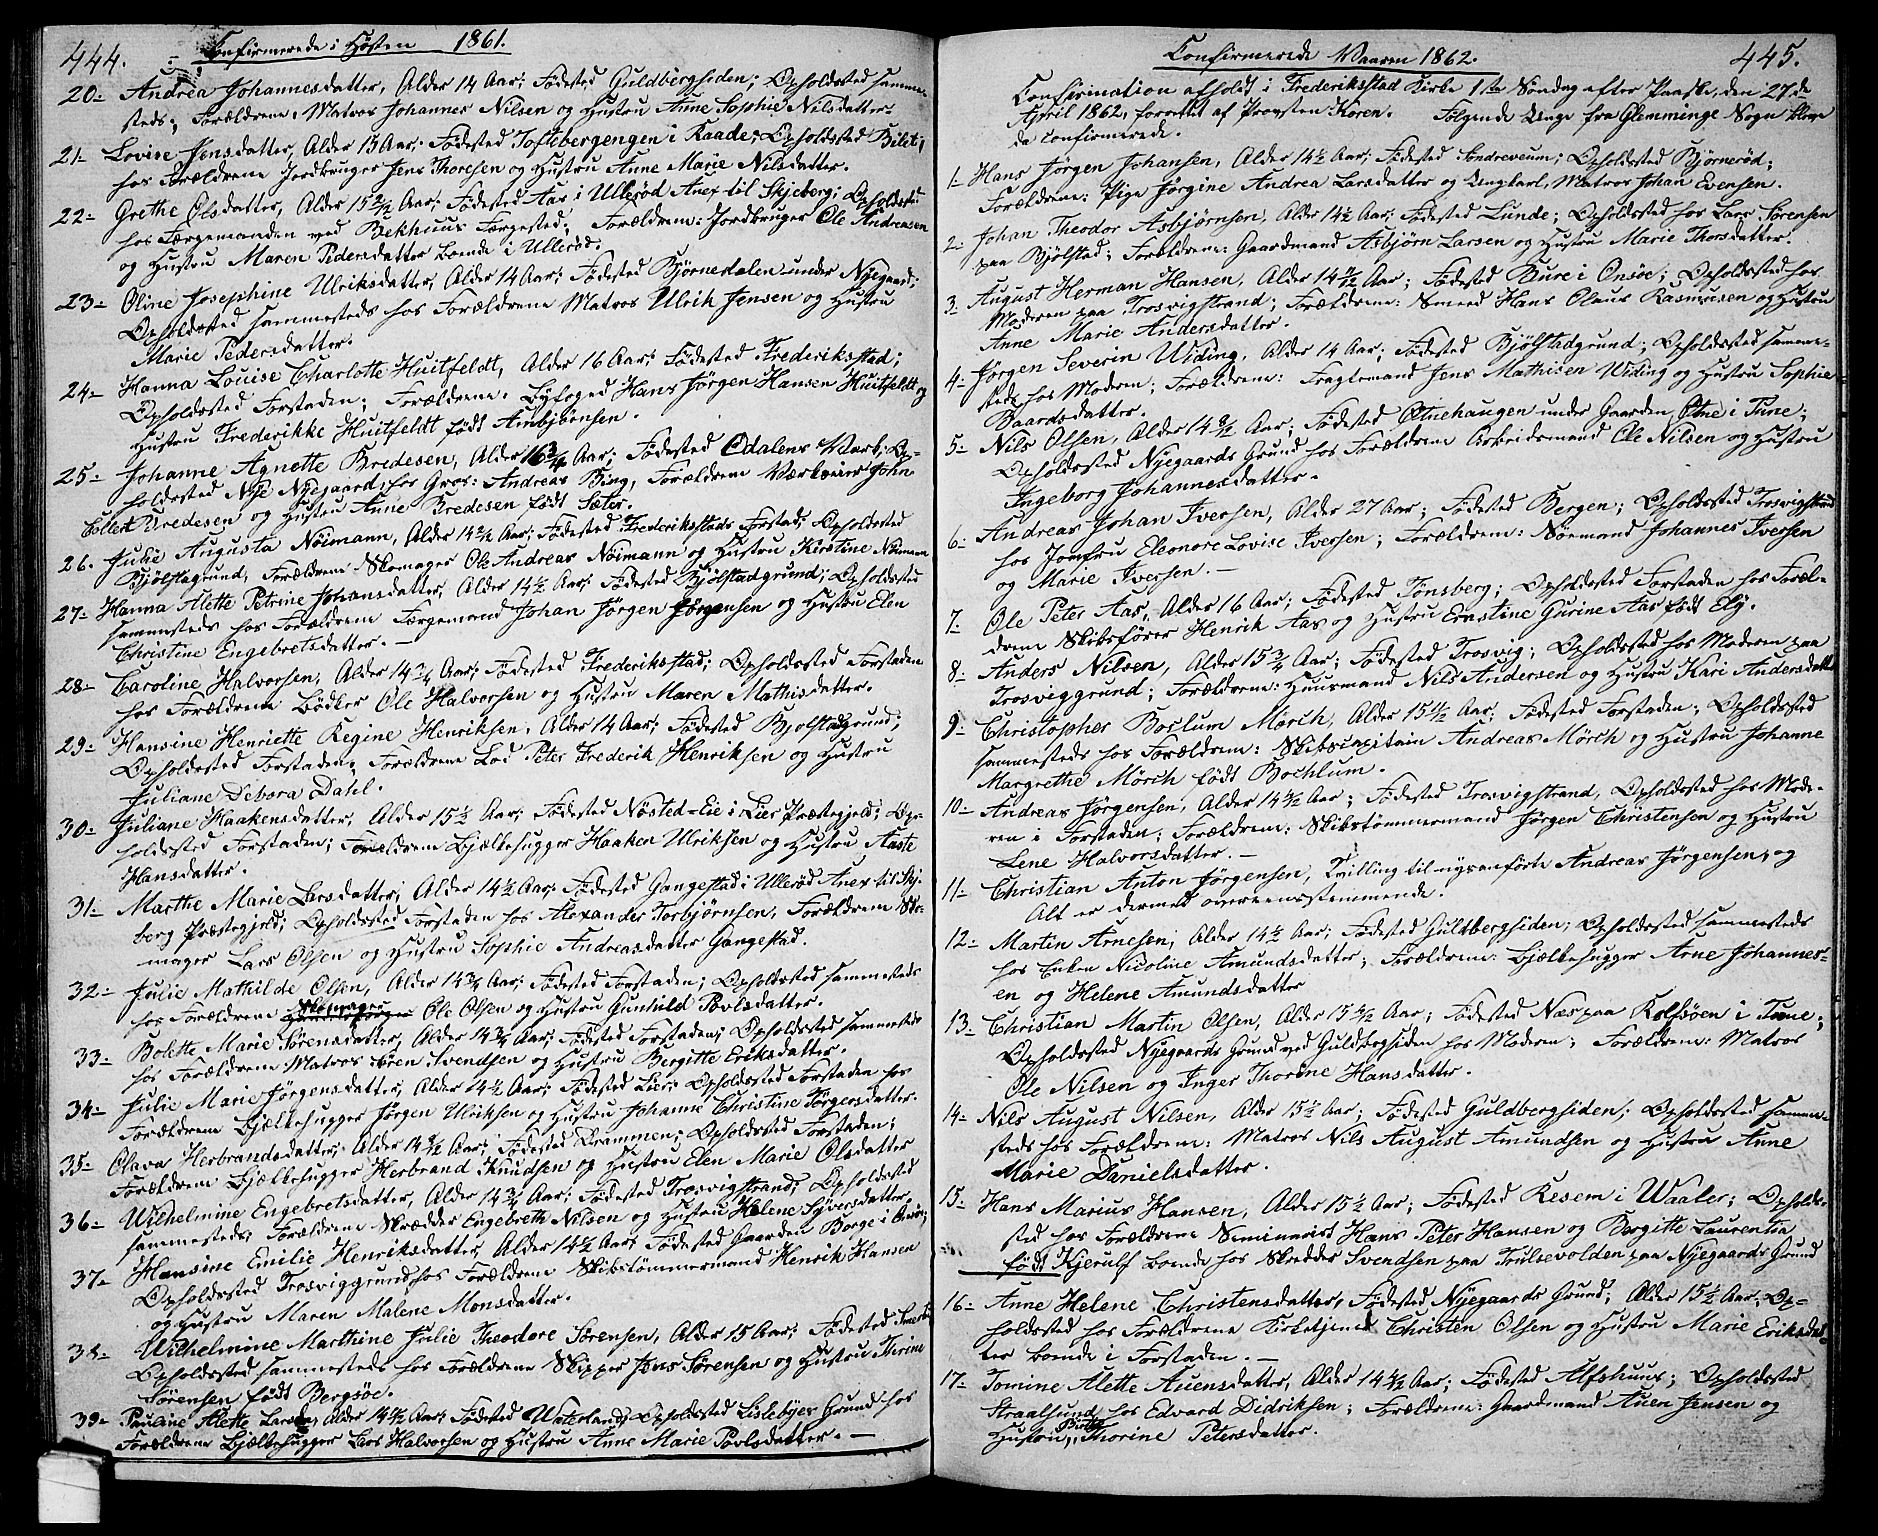 444.
Confirmerede i Høsten 1861.
20- Andrea Johannesdatter, Alder 14 Aar; Fødested Guldbergsiden; Opholdssted samme-
steds; Forældrene, Matros Johannes Nilsen og Hustru Anne Sophie Nilsdatter.
21- Lovise Jensdatter, Alder 15 Aar. Fødested Toftebergengen i Raade; Opholdssted
hos Forældrene Jordbruger Jens Thoresen og Hustru Anne Marie Nilsdatter.
22- Grethe Olsdatter, Alder 15 2/12 Aar; Fødested Aas i Ullerød Anex til Skjeberg; Opholdssted
hos Færgemanden ved Bekhuus Færgested; Forældrene: Jordbruger Ole Andreasen
og Hustru Maren Pedersdatter boende i Ullerød.
23- Oline Josephine Ulriksdatter, Alder 14 Aar; Fødested Bjørnedalen under Nyegaard;
Opholdssted sammesteds hos Forældrene Matros Ulrik Jensen og Hustru
Marie Pedersdatter.
24- Hanna Louise Charlotte Huitfeldt, Alder 16 Aar; Fødested Frederiksstad;
Opholdssted Forstaden; Forældrene, Byfoged Hans Jørgen Hansen Huitfeldt og
Hustru Frederikke Huitfeldt født Ambjørnsen.
25- Johanne Agnette Bredesen, Alder 16 3/4 Aar; Fødested Odalens Værk; Op-
holdssted Nye Nyegaard, hos Gros: Andreas Bing, Forældrene Værkseier John
Ellert Bredesen og Hustru Anne Bredesen født Sæter.
26. Julie Augusta Nöimann, Alder 14 Aar; Fødested Frederiksstads Forstad; Opholdssted
Bjølstadgrund, Forældrene Skomager Ole Andreas Nöimann og Hustru Kirstine Nöimann
27- Hanna Alette Petrine Johansdatter, Alder 14 1/2 Aar; Fødested Bjølstadgrund; Opholdssted
sammesteds hos Forældrene Færgemand Johan Jørgen Jørgensen og Hustru Elen
Christine Engebretsdatter. —
28- Caroline Halvorsen, Alder 14 3/4 Aar; Fødested Frederiksstad; Opholdssted Forstaden
hos Forældrene Bødker Ole Halvorsen og Hustru Maren Mathisdatter.
29- Hansine Henriette Regine Henriksen, Alder 14 Aar; Fødested Bjølstadgrund;
Opholdssted Forstaden, Forældrene Lods Peter Frederik Henriksen og Hustru
Juliane Debora Dahl.
30- Juliane Haakensdatter, Alder 15 1/2 Aar; Fødested Nøsted-Eie i Lier Præstegjeld; Op-
holdssted Forstaden; Forældrene Bjelkehugger Haaken Ulriksen og Hustru Aaste
Hansdatter.
31- Marthe Marie Larsdatter, Alder 14 1/2 Aar; Fødested Gangestad i Ullerød Anex til Skje-
berg Præstegjeld; Opholdssted Forstaden hos Alexander Torbjørnsen, Forældrene Sko-
mager Lars Olsen og Hustru Sophie Andreasdatter Gangestad.
32- Julie Mathilde Olsen, Alder 14 3/4 Aar; Fødested Forstaden; Opholdssted sammesteds
hos Forældrene Skomager Ole Olsen og Hustru Gunhild Povlsdatter.
33- Bolette Marie Sørensdatter, Alder 14 3/4 Aar; Fødested Forstaden; Opholdssted sammesteds
hos Forældrene Matros Søren Svendsen og Hustru Bergitte Eriksdatter.
34- Julie Marie Jørgensdatter, Alder 14 1/2 Aar; Fødested Lier; Opholdssted Forstaden hos
Forældrene Bjelkehugger Jørgen Ulriksen og Hustru Johanne Christine Jørgensdatter.
35- Olava Herbrandsdatter, Alder 14 Aar; Fødested Drammen; Opholdssted Forstaden;
Forældrene Bjelkehugger Herbrand Knudsen og Hustru Elen Marie Olsdatter
36- Wilhelmine Engebretsdatter, Alder 14 3/4 Aar; Fødested Trosvigstrand; Opholdssted
sammesteds; Forældrene Skrædder Engebreth Nilsen og Hustru Helene Syversdatter,
37- Hansine Emilie Henriksdatter, Alder 14 1/2 Aar; Fødested Gaarden Borge i Onsøe;
Opholdssted Trosviggrund hos Forældrene Skibstømmermand Henrik Hansen
og Hustru Maren Malene Monsdatter.
38- Wilhelmine Marthine Julie Theodore Sørensen, Alder 15 Aar; Fødested
Opholdssted sammesteds hos Forældrene Skipper Jens Sørensen og Hustru Thrine
Sørensen født Bergsøe.
39- Pauline Alette Larsen, Alder 14 1/2 Aar; Fødested Waterland; Opholdssted Lislebyes Grund hos
Forældrene Bjelkehugger Lars Halvorsen og Hustru Anne Marie Povlsdatter. —
445.
Confirmerede Vaaren 1862.
Confirmation afholdt i Frederiksstad Kirke 1ste Søndag efter Paaske, den 27de
April 1862, forrettet af Provsten Koren. Følgende Unge fra Glemminge Sogn bleve
da confirmerede.
1- Hans Jørgen Johansen, Alder 14 1/2 Aar; Fødested Sondreveum; Opholdssted Bjørnerød;
Forældrene: Pige Jørgine Andrea Larsdatter og Ungkarl, Matros Johan Evensen.
2- Johan Theodor Asbjørnsen, Alder 14 1/2 Aar; Fødested Lunde; Opholdssted hos Lars Sørensen
paa Bjølstad; Forældrene: Gaardmand Asbjørn Larsen og Hustru Marie Thorsdatter.
3- August Herman Hansen, Alder 14 Aar; Fødested Bure i Onsøe; Opholdssted hos
Moderen paa Trosvigstrand; Forældrene: Smeed Hans Olaus Rasmusen og Hustru
Anne Marie Andersdatter.
4- Jørgen Severin Widing, Alder 14 Aar; Fødested Bjølstadgrund; Opholdssted samme-
steds hos Moderen; Forældrene: Fragtemand Jens Mathisen Widing og Hustru Sophie
Baardsdatter.
5- Nils Olsen, Alder 14 Aar; Fødested Øtnehaugen under Gaarden Øtne i Tune;
Opholdssted Nyegaards Grund hos Forældrene Arbeidsmand Ole Nilsen og Hustru
Ingeborg Johannesdatter.
6- Andreas Johan Iversen, Alder 27 Aar; Fødested Bergen; Opholdssted Trosvigstrand
hos Jomfru Eleonore Lovise Iversen; Forældrene: Sømand Johannes Iversen
og Marie Iversen. —
7- Ole Peter Aas, Alder 16 Aar; Fødested Tønsberg; Opholdssted Forstaden hos Foræl-
drene Skibsfører Henrik Aas og Hustru Ernstine Gurine Aas født Ely.
8- Anders Nilsen, Alder 15 3/4 Aar; Fødested Trosvig; Opholdssted hos Moderen paa
Trosviggrund; Forældrene: Huusmand Nils Andersen og Hustru Kari Andersdatter
9- Christopher Boclum Mörch, Alder 15 1/2 Aar; Fødested Forstaden; Opholdssted
sammesteds hos Forældrene: Skibscapitain Andreas Mörch og Hustru Johanne
Margrethe Mörch født Bochlum.
10- Andreas Jørgensen, Alder 14 1/2 Aar; Fødested Trosvigstrand, Opholdssted hos Mode-
ren i Forstaden; Forældrene: Skibstømmermand Jørgen Christensen og Hustru
Lene Halvorsdatter. —
11- Christian Anton Jørgensen, Tvilling til nysanførte Andreas Jørgensen, og
Alt er dermed overeensstemmende.
12- Martin Arnesen; Alder 14 1/2 Aar; Fødested Guldbergsiden; Opholdssted sammesteds
hos Enken Nicoline Amundsdatter; Forældrene: Bjelkehugger Arne Johannes-
en og Helene Amundsdatter
13- Christian Martin Olsen, Alder 15 Aar; Fødested Næs paa Rolfsøen i Tune;
Opholdssted Nyegaards Grund ved Guldbergsiden hos Moderen; Forældrene: Matros
Ole Nilsen og Inger Thorine Hansdatter.
14- Nils August Nilsen, Alder 15 1/2 Aar; Fødested Guldbergsiden; Opholdssted samme-
steds hos Forældrene: Matros Nils August Amundsen og Hustru Anne
Marie Danielsdatter.
15- Hans Marius Hansen, Alder 15 1/2 Aar; Fødested Kesem i Waaler; Opholds-
sted hos Forældrene Seminarist Hans Peter Hansen og Bergitte Laurentia
født Kjerulf boende hos Skrædder Svendsen paa Trulsevolden paa Nyegaards Grund
16- Anne Helene Christensdatter, Fødested Nyegaards Grund; Alder 15 1/2 Aar; Op-
holdssted hos Forældrene Kirketjener Christen Olsen og Hustru Marie Eriksdat-
ter boende i Forstaden. —
17- Tomine Alette Auensdatter, Alder 14 1/2 Aar; Fødested Alfshuus; Opholdssted
Straalsund hos Edvard Didriksen; Forældrene: Gaardmand Auen Jensen og
Hustru Thorine Petersdatter.